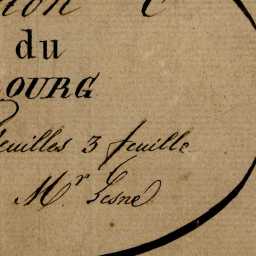 du
OURG
feuilles 3 feuille
Mr Lesne